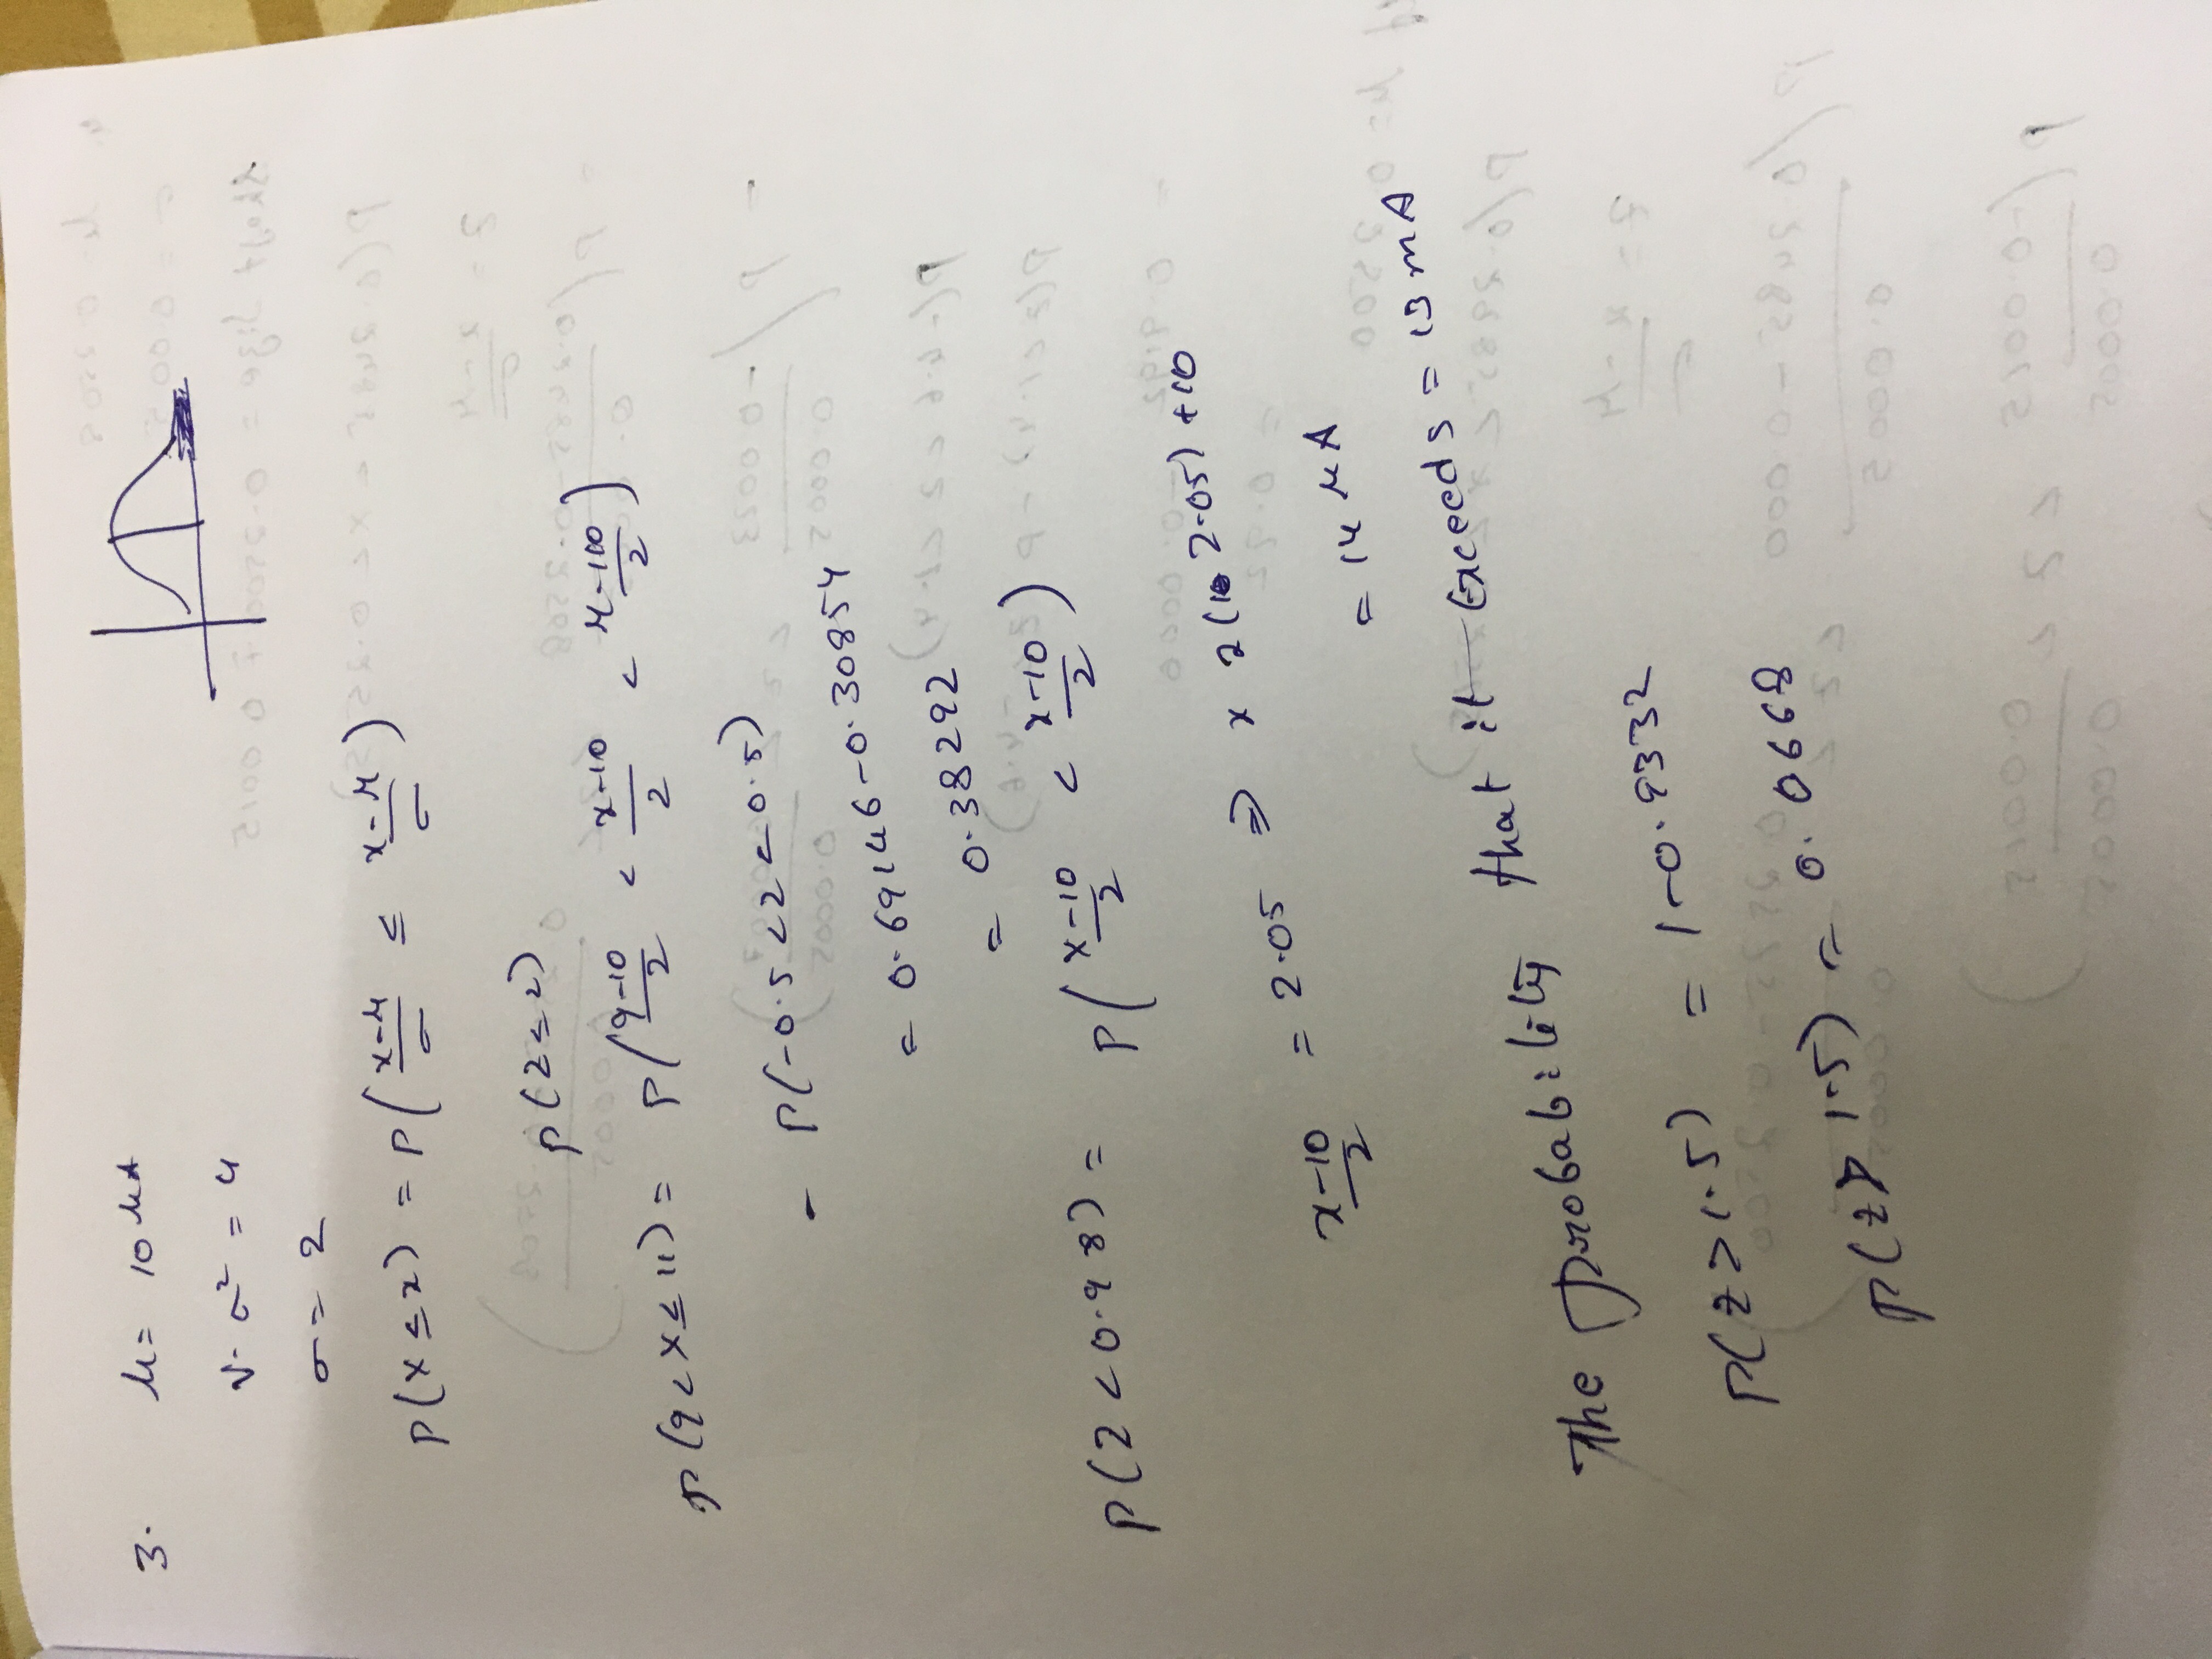 3. μ = 10 μA
V. σ² = 4
σ = 2
P(X ≤ x) = P((x-μ)/σ ≤ (x-μ)/σ)
P(Z ≤ z)
P(9 < X ≤ 11) = P((9-10)/2 < (x-10)/2 < (μ-110)/2)
- P(-0.5 < z < 0.5)
= 0.69146 - 0.30854
= 0.38292
P(Z < 0.98) = P((x-10)/2 < (x-10)/2)
(x-10)/2 = 2.05 ⇒ x 2(10 2.05) + 10
= 14 μA
The probability that it exceeds = 13 mA
P(z > 1.5) = 1 - 0.9332
P(z > 1.5) = 0.0668